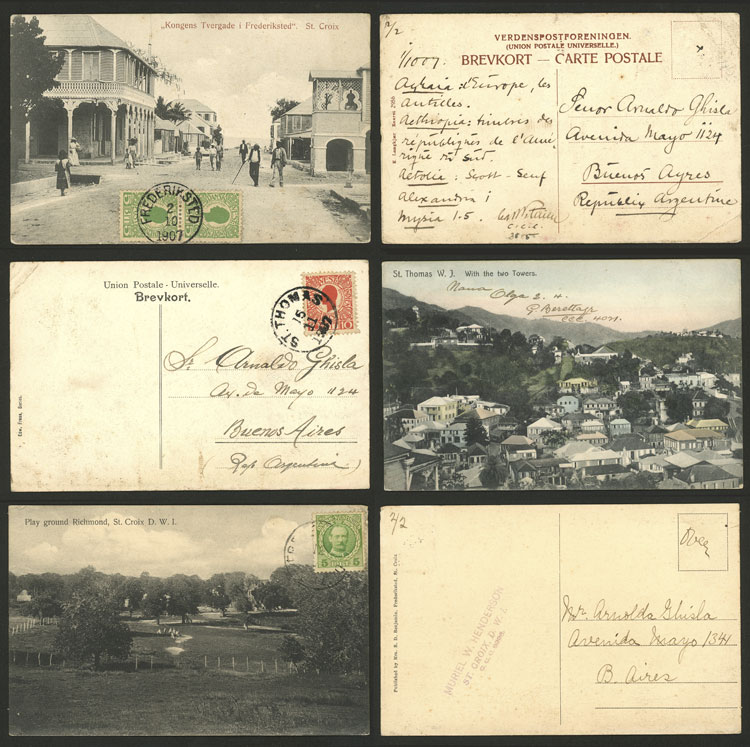 „Kongens Tvergade i Frederiksted“. St. Croix
FREDERIKSTED
2
10
1907
2/2
VERDENSPOSTFORENINGEN.
(UNION POSTALE UNIVERSELLE.)
BREVKORT — CARTE POSTALE
d'Europe, les
Antilles.
Aethiopia: timbres des
républiques de l'Amé-
rique du Sud.
Aetolie: Scott - Senf
Alexandra 1
Mysia 1-5.
Senor Arnaldo Ghisla
Avenida Mayo 1124
Buenos Ayres
Republix Argentine
Union Postale - Universelle.
Brevkort.
ST. THOMAS
15
11
10
Sr. Arnaldo Ghisla
Av. de Mayo 1124
Buenos Aires
(Rep. Argentina)
St. Thomas W. J. With the two Towers.
Olga 2. 4.
Play ground Richmond, St. Croix D. W. I.
5
2/2
MURIEL W. HENDERSON
ST. CROIX, D. W. I.
Published by Wm. R. D. Benjamin, Frederiksted, St. Croix
Mr. Arnolda Ghisla
Avenida Mayo 1341
B. Aires